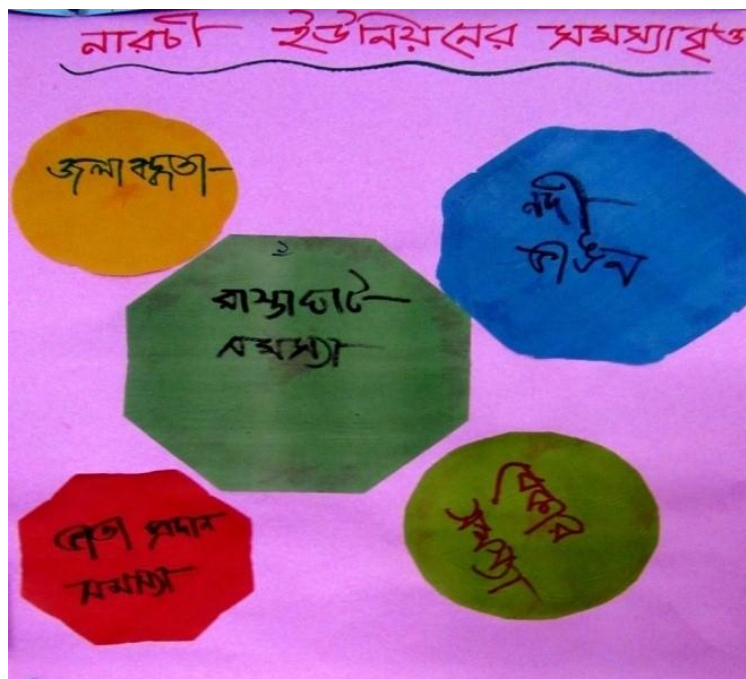 নারচী ইউনিয়নের সমস্যাবৃত্ত
জলাবদ্ধতা
নদী
ভাঙন
২
রাস্তাঘাট
সমস্যা
প্রদান
সমস্যা
বেকার
সমস্যা